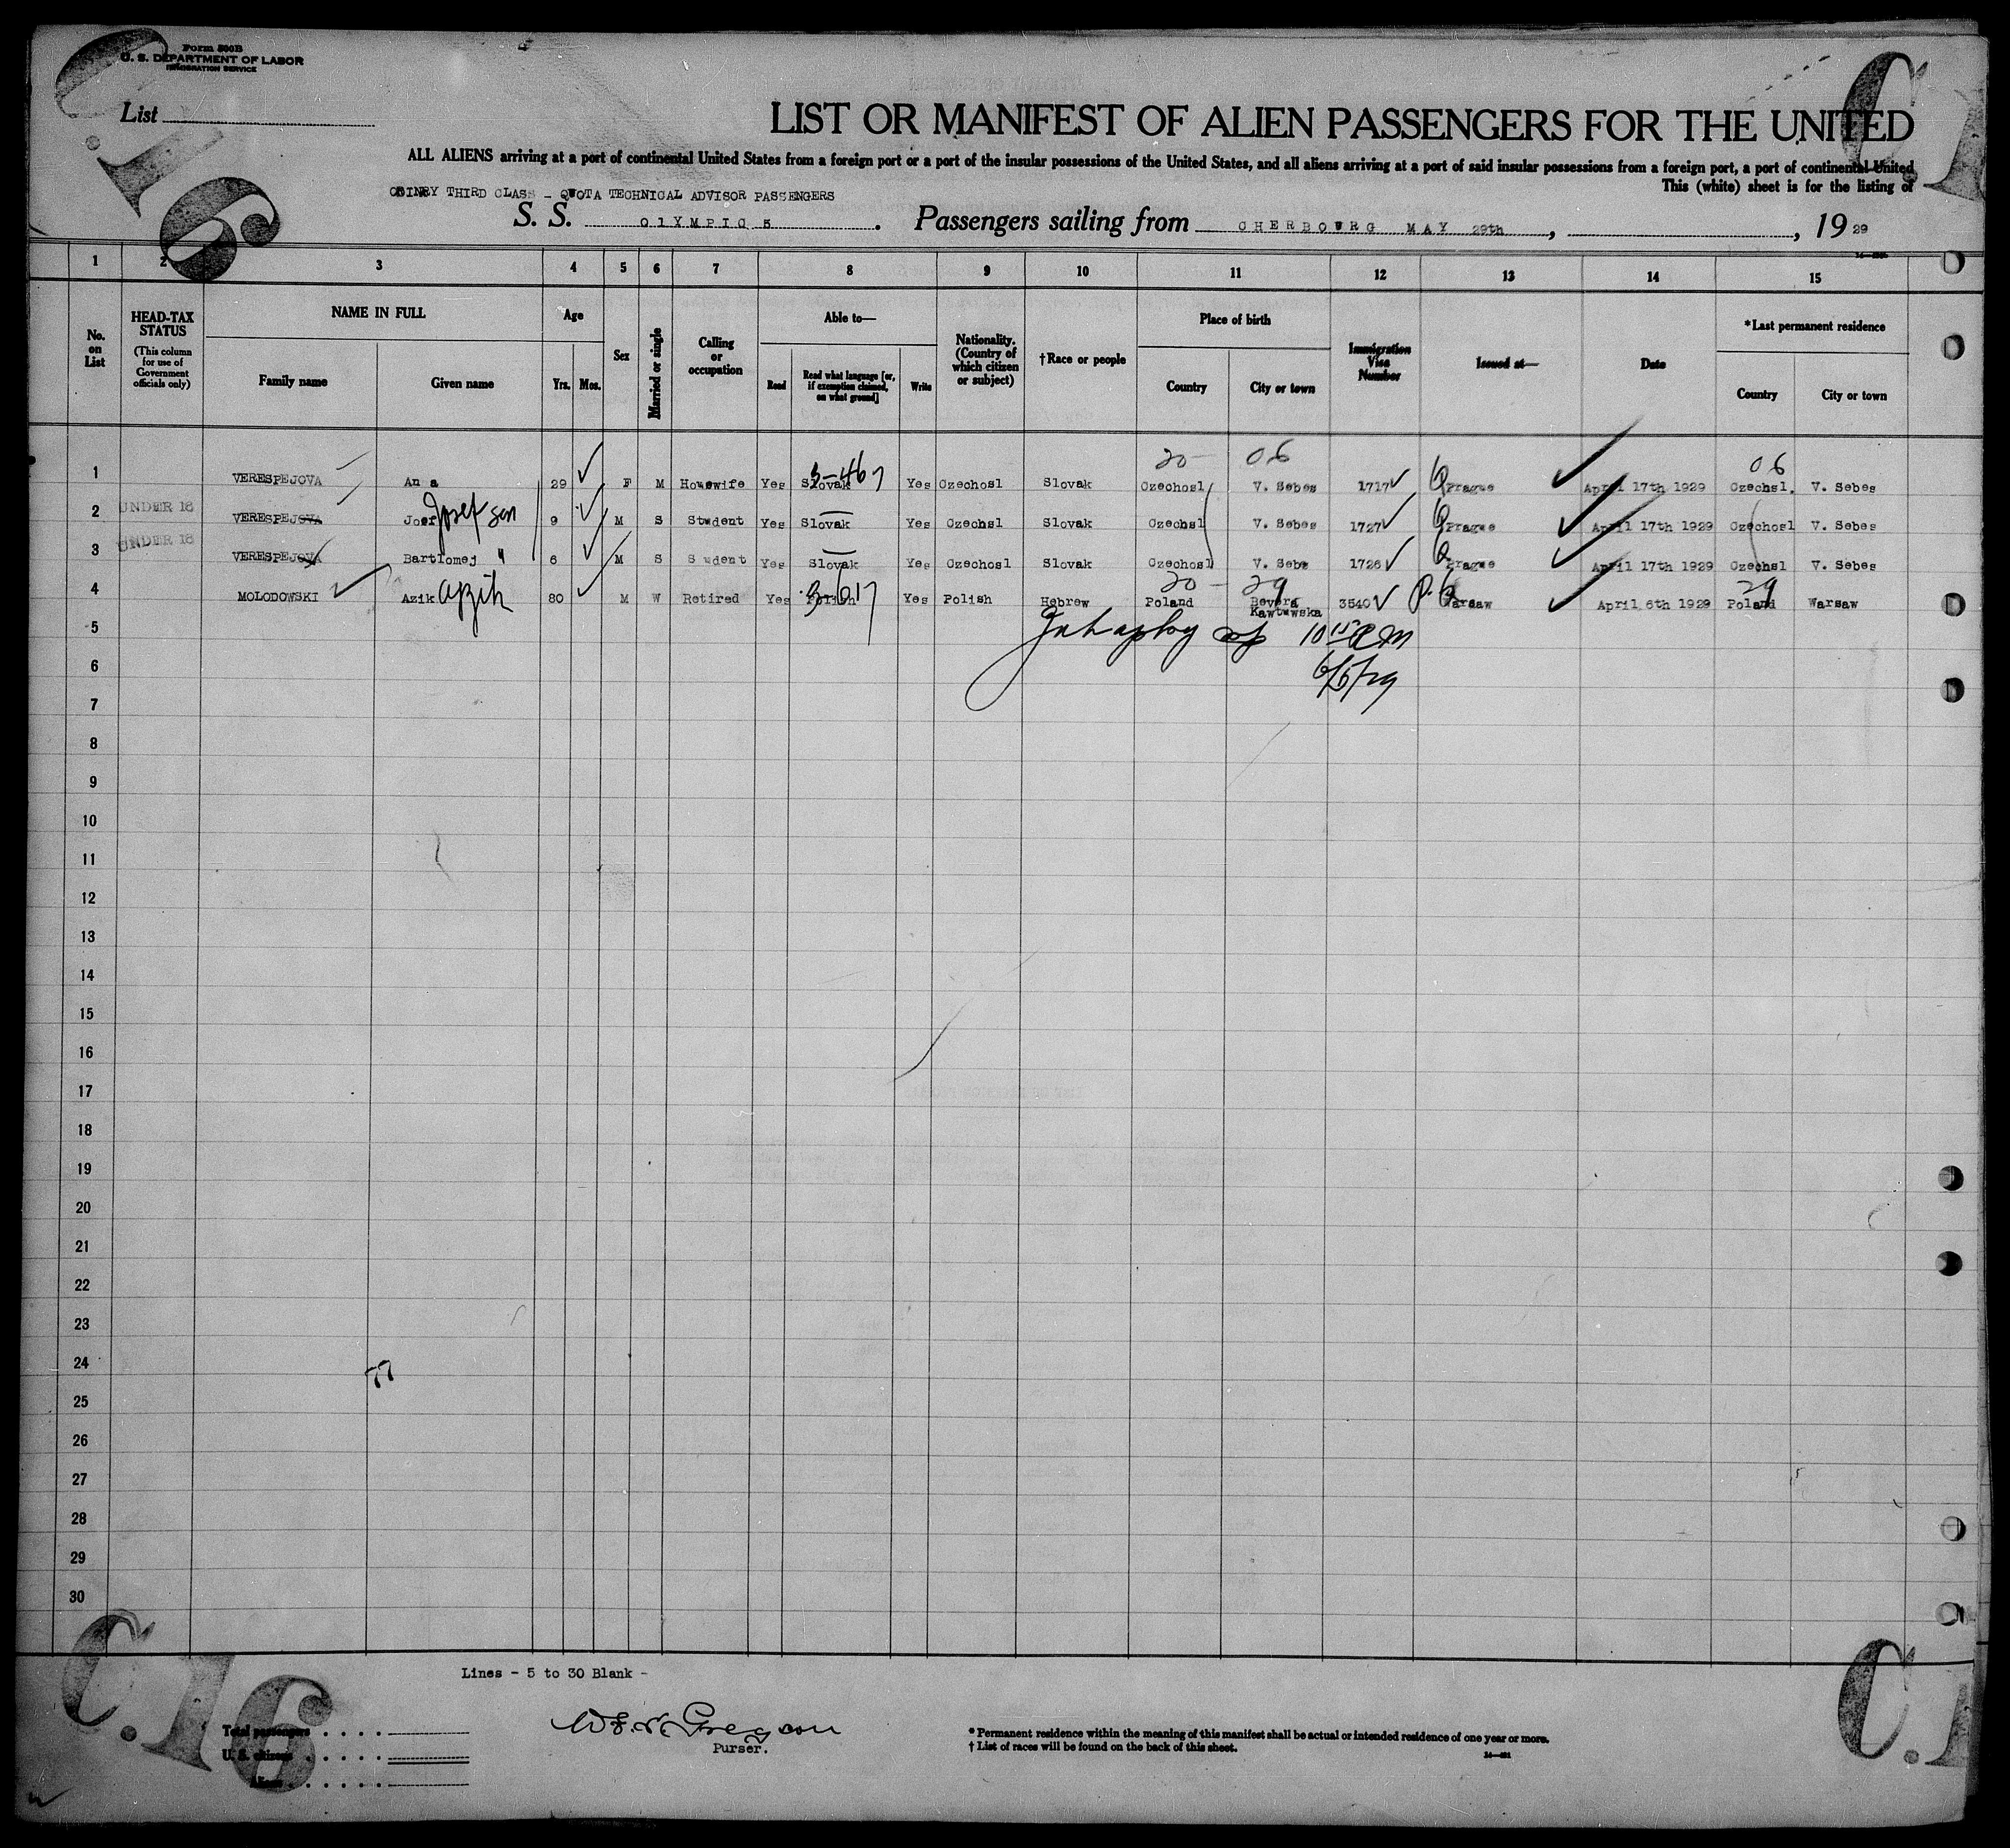 Form 500B
U. S. DEPARTMENT OF LABOR
IMMIGRATION SERVICE
C.16
C.1
List
LIST OR MANIFEST OF ALIEN PASSENGERS FOR THE UNITED
ALL ALIENS arriving at a port of continental United States from a foreign port or a port of the insular possessions of the United States, and all aliens arriving at a port of said insular possessions from a foreign port, a port of continental United
This (white) sheet is for the listing of
THIRD CLASS - QUOTA TECHNICAL ADVISOR PASSENGERS
S. S. OlYMPIC 5. Passengers sailing from CHERBOURG MAY 29th, , 19 29
1 2 3 4 5 6 7 8 9 10 11 12 13 14 15
No. on List
HEAD-TAX STATUS (This column for use of Government officials only)
NAME IN FULL
Family name
Given name
Age
Yrs. Mos.
Sex
Married or single
Calling or occupation
Able to—
Read
Read what language [or, if exemption claimed, on what ground]
Write
Nationality. (Country of which citizen or subject)
†Race or people
Place of birth
Country
City or town
Immigration Visa Number
Issued at—
Date
*Last permanent residence
Country
City or town
20 06 06
1 VERESPEJOVA An a 29 F M Housewife Yes Slovak 3-467 Yes Czechosl Slovak Czechosl V. Sebes 1717 Prague April 17th 1929 Czechsl. V. Sebes
2 UNDER 16 VERESPEJOVA Josef son 9 M S Student Yes Slovak Yes Czechsl Slovak Czechsl V. Sebes 1727 Prague April 17th 1929 Czechosl V. Sebes
3 UNDER 16 VERESPEJOVA Bartlomej " 6 M S S udent Yes Slovak Yes Czechosl Slovak Czechosl V. Sebe 1726 Prague April 17th 1929 Czechsl V. Sebes
20 29 29
4 MOLODOWSKI Azik Ajzik 80 M W Retired Yes Polish 3-617 Yes Polish Hebrew Poland Kawtuwska 3540 Warsaw April 6th 1929 Poland Warsaw
5 10 15 AM
6 6/5/29
7
8
9
10
11
12
13
14
15
16
17
18
19
20
21
22
23
24 77
25
26
27
28
29
30
Lines - 5 to 30 Blank -
C.16
Total passengers
U. S. citizens
Aliens
Gregson
Purser.
* Permanent residence within the meaning of this manifest shall be actual or intended residence of one year or more.
† List of races will be found on the back of this sheet.
C.1